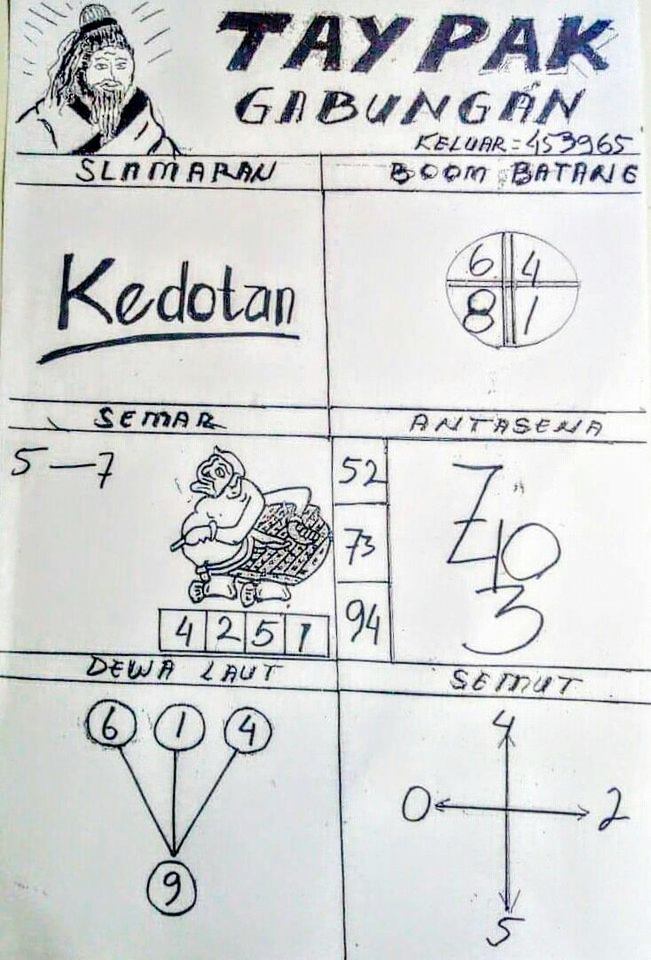 TAYPAK
GABUNGAN
KELUAR=453965
SLAMARAN
BOOM BATANG
Kedotan
6 4
8 1
SEMAR
5-7
52
73
94
4 2 5 1
ANTASENA
7
40
3
DEWA LAUT
6 1 4
9
SEMUT
4
0 2
5